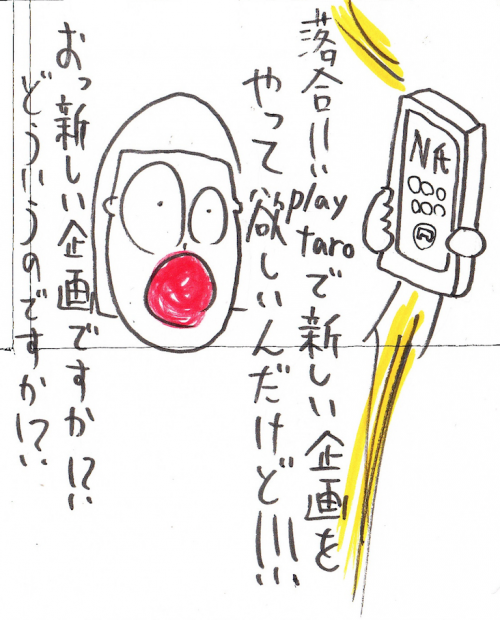 落合!!!
play taroで新しい企画を
やって欲しいんだけど!!!!
おっ新しい企画ですか!?
どういうのですか!?